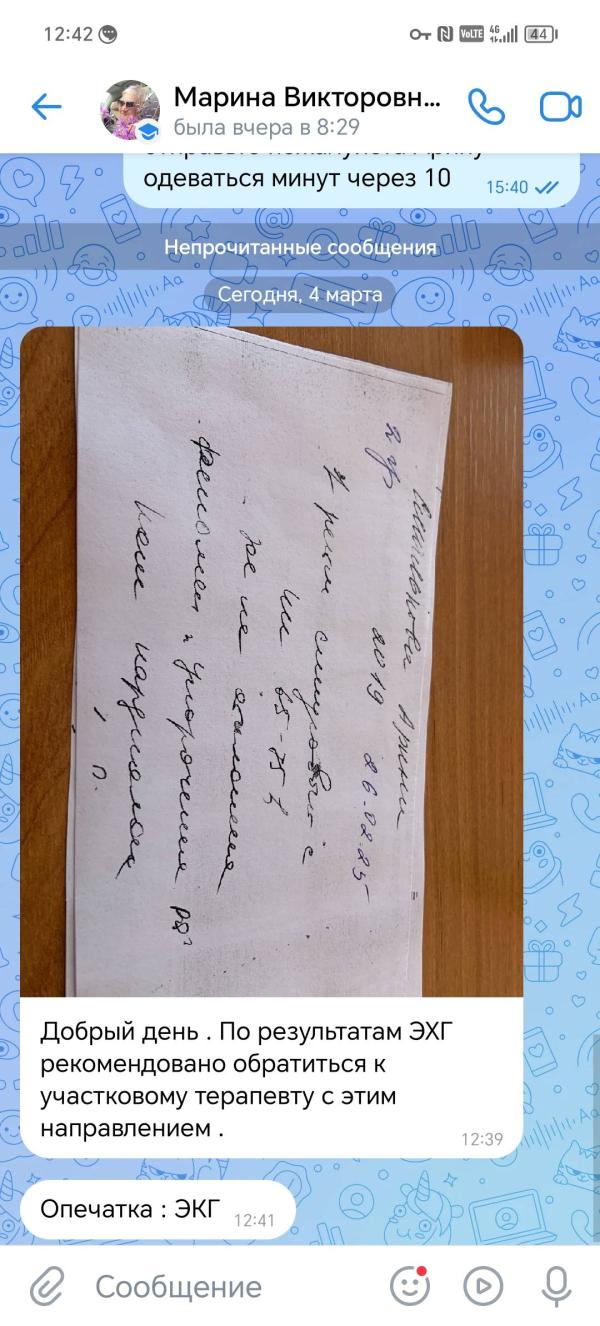 12:42
VoLTE
4G
44
Марина Викторовн...
была вчера в 8:29
одеваться минут через 10
15:40
Непрочитанные сообщения
Сегодня, 4 марта
Арины
2 гр 2019 26.02.25
65-75
не
Феномен укорочения PQ?
Добрый день . По результатам ЭХГ
рекомендовано обратиться к
участковому терапевту с этим
направлением .
12:39
Опечатка : ЭКГ
12:41
Сообщение